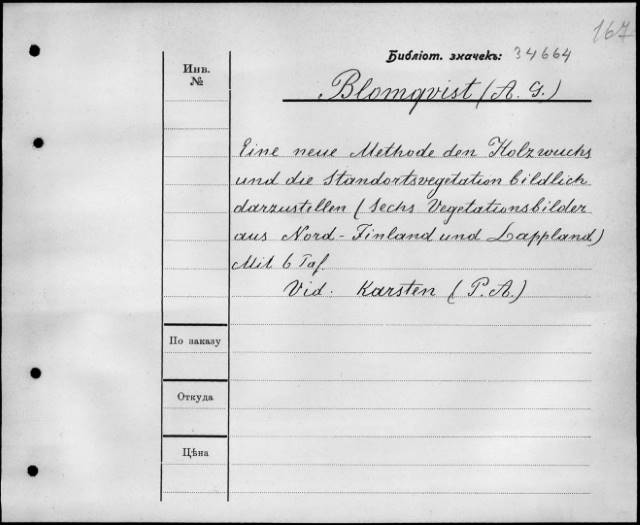 167
Библіот. значекъ: 34664
Инв.
№
Blomqvist (A. G.)
Eine neue Methode den Holzwuchs
und die Standortsvegetation bildlich
darzustellen (Sechs Vegetationsbilder
aus Nord-Finland und Lappland)
Mit 6 Taf.
Vid. Karsten (P. A.)
По заказу
Откуда
Цѣна